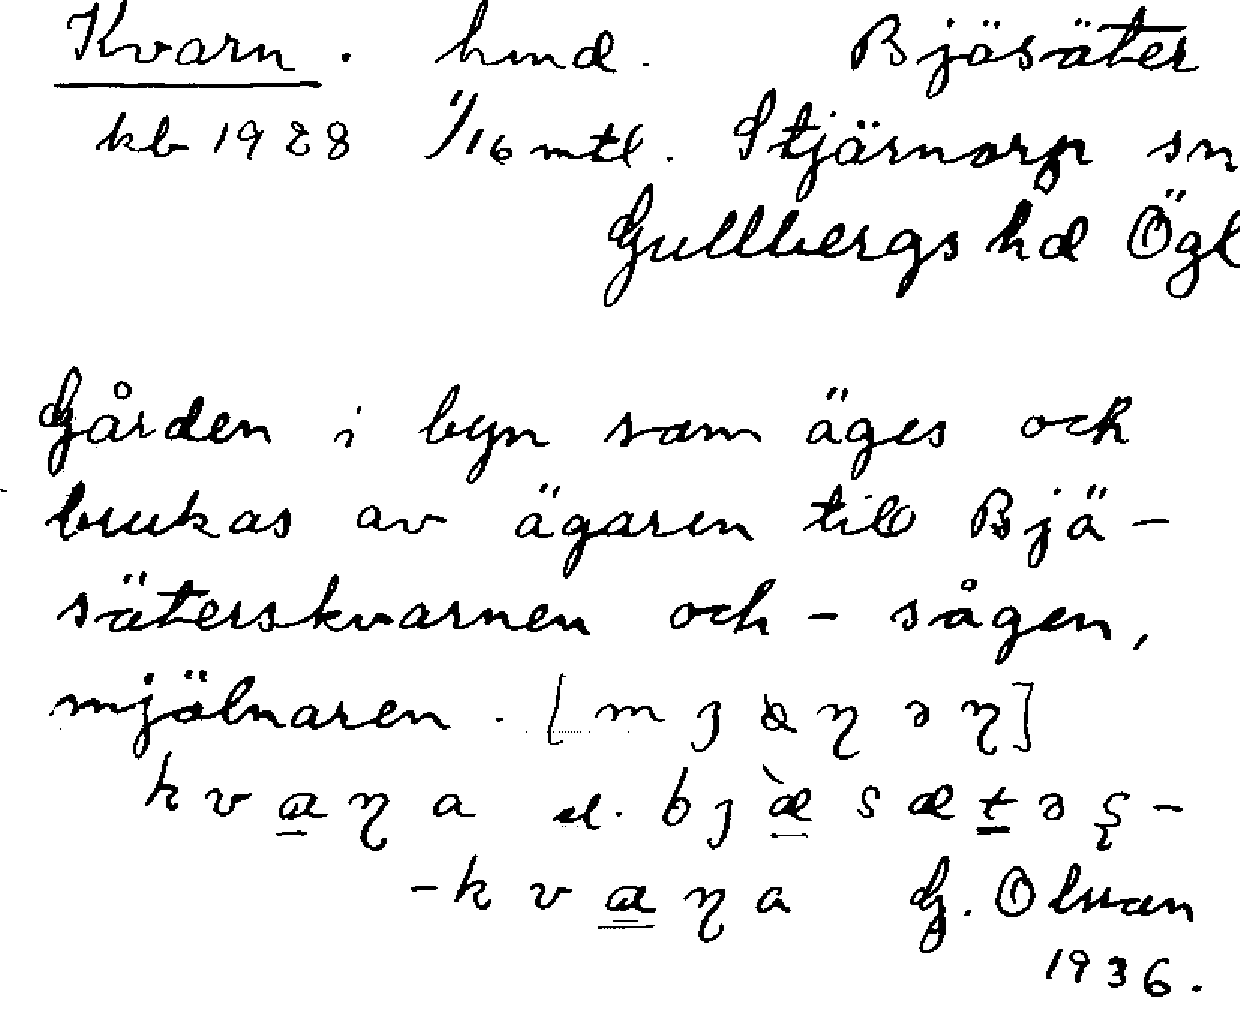 Kvarn. hmd. Bjäsäter
kb 1928 1/16 mtl. Stjärnorp sn
Gullbergs hd Ögl
Gården i byn som äges och
brukas av ägaren till Bjä-
säterskvarnen och - sågen,
mjölnaren. [m ȷ ɳ ə ɳ]
k v a ɳ a el. b ȷ æ̀ s æ t ə ʂ -
- k v a ɳ a G. Olsson
1936.